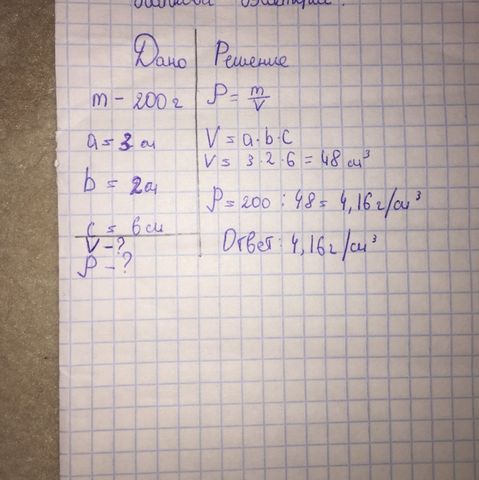 Дано Решение
m - 200 г ρ = m/V
a = 3 см V = a·b·c
V = 3·2·6 = 48 см³
b = 2 см
ρ = 200 : 48 = 4,16 г/см³
c = 6 см
V - ? Ответ: 4,16 г/см³
ρ - ?